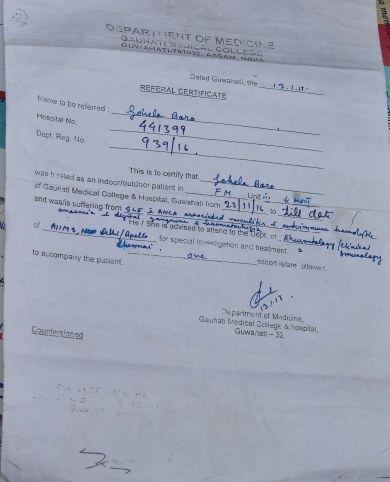 DEPARTMENT OF MEDICINE
GAUHATI MEDICAL COLLEGE
GUWAHATI-781032, ASSAM, INDIA
Dated Guwahati, the 13.1.17
REFERAL CERTIFICATE
Name to be referred: Gohela Boro
Hospital No. 441399
Dept. Reg. No. 939/16
This is to certify that Gohela Boro
was treated as an indoor/outdoor patient in FM Unit
of Gauhati Medical College & Hospital, Guwahati from 23/11/16 to till date
and was/is suffering from SLE ANCA associated vasculitis & autoimmune hemolytic
anaemia & digital gangrene
He / She is advised to attend to the Dept. of Rheumatology/clinical immunology
of AIIMS, New Delhi/Apollo Chennai for special investigation and treatment.
to accompany the patient. one escort is/are allowed
13.1.17
Department of Medicine,
Gauhati Medical College & hospital,
Guwahati – 32
Countersigned